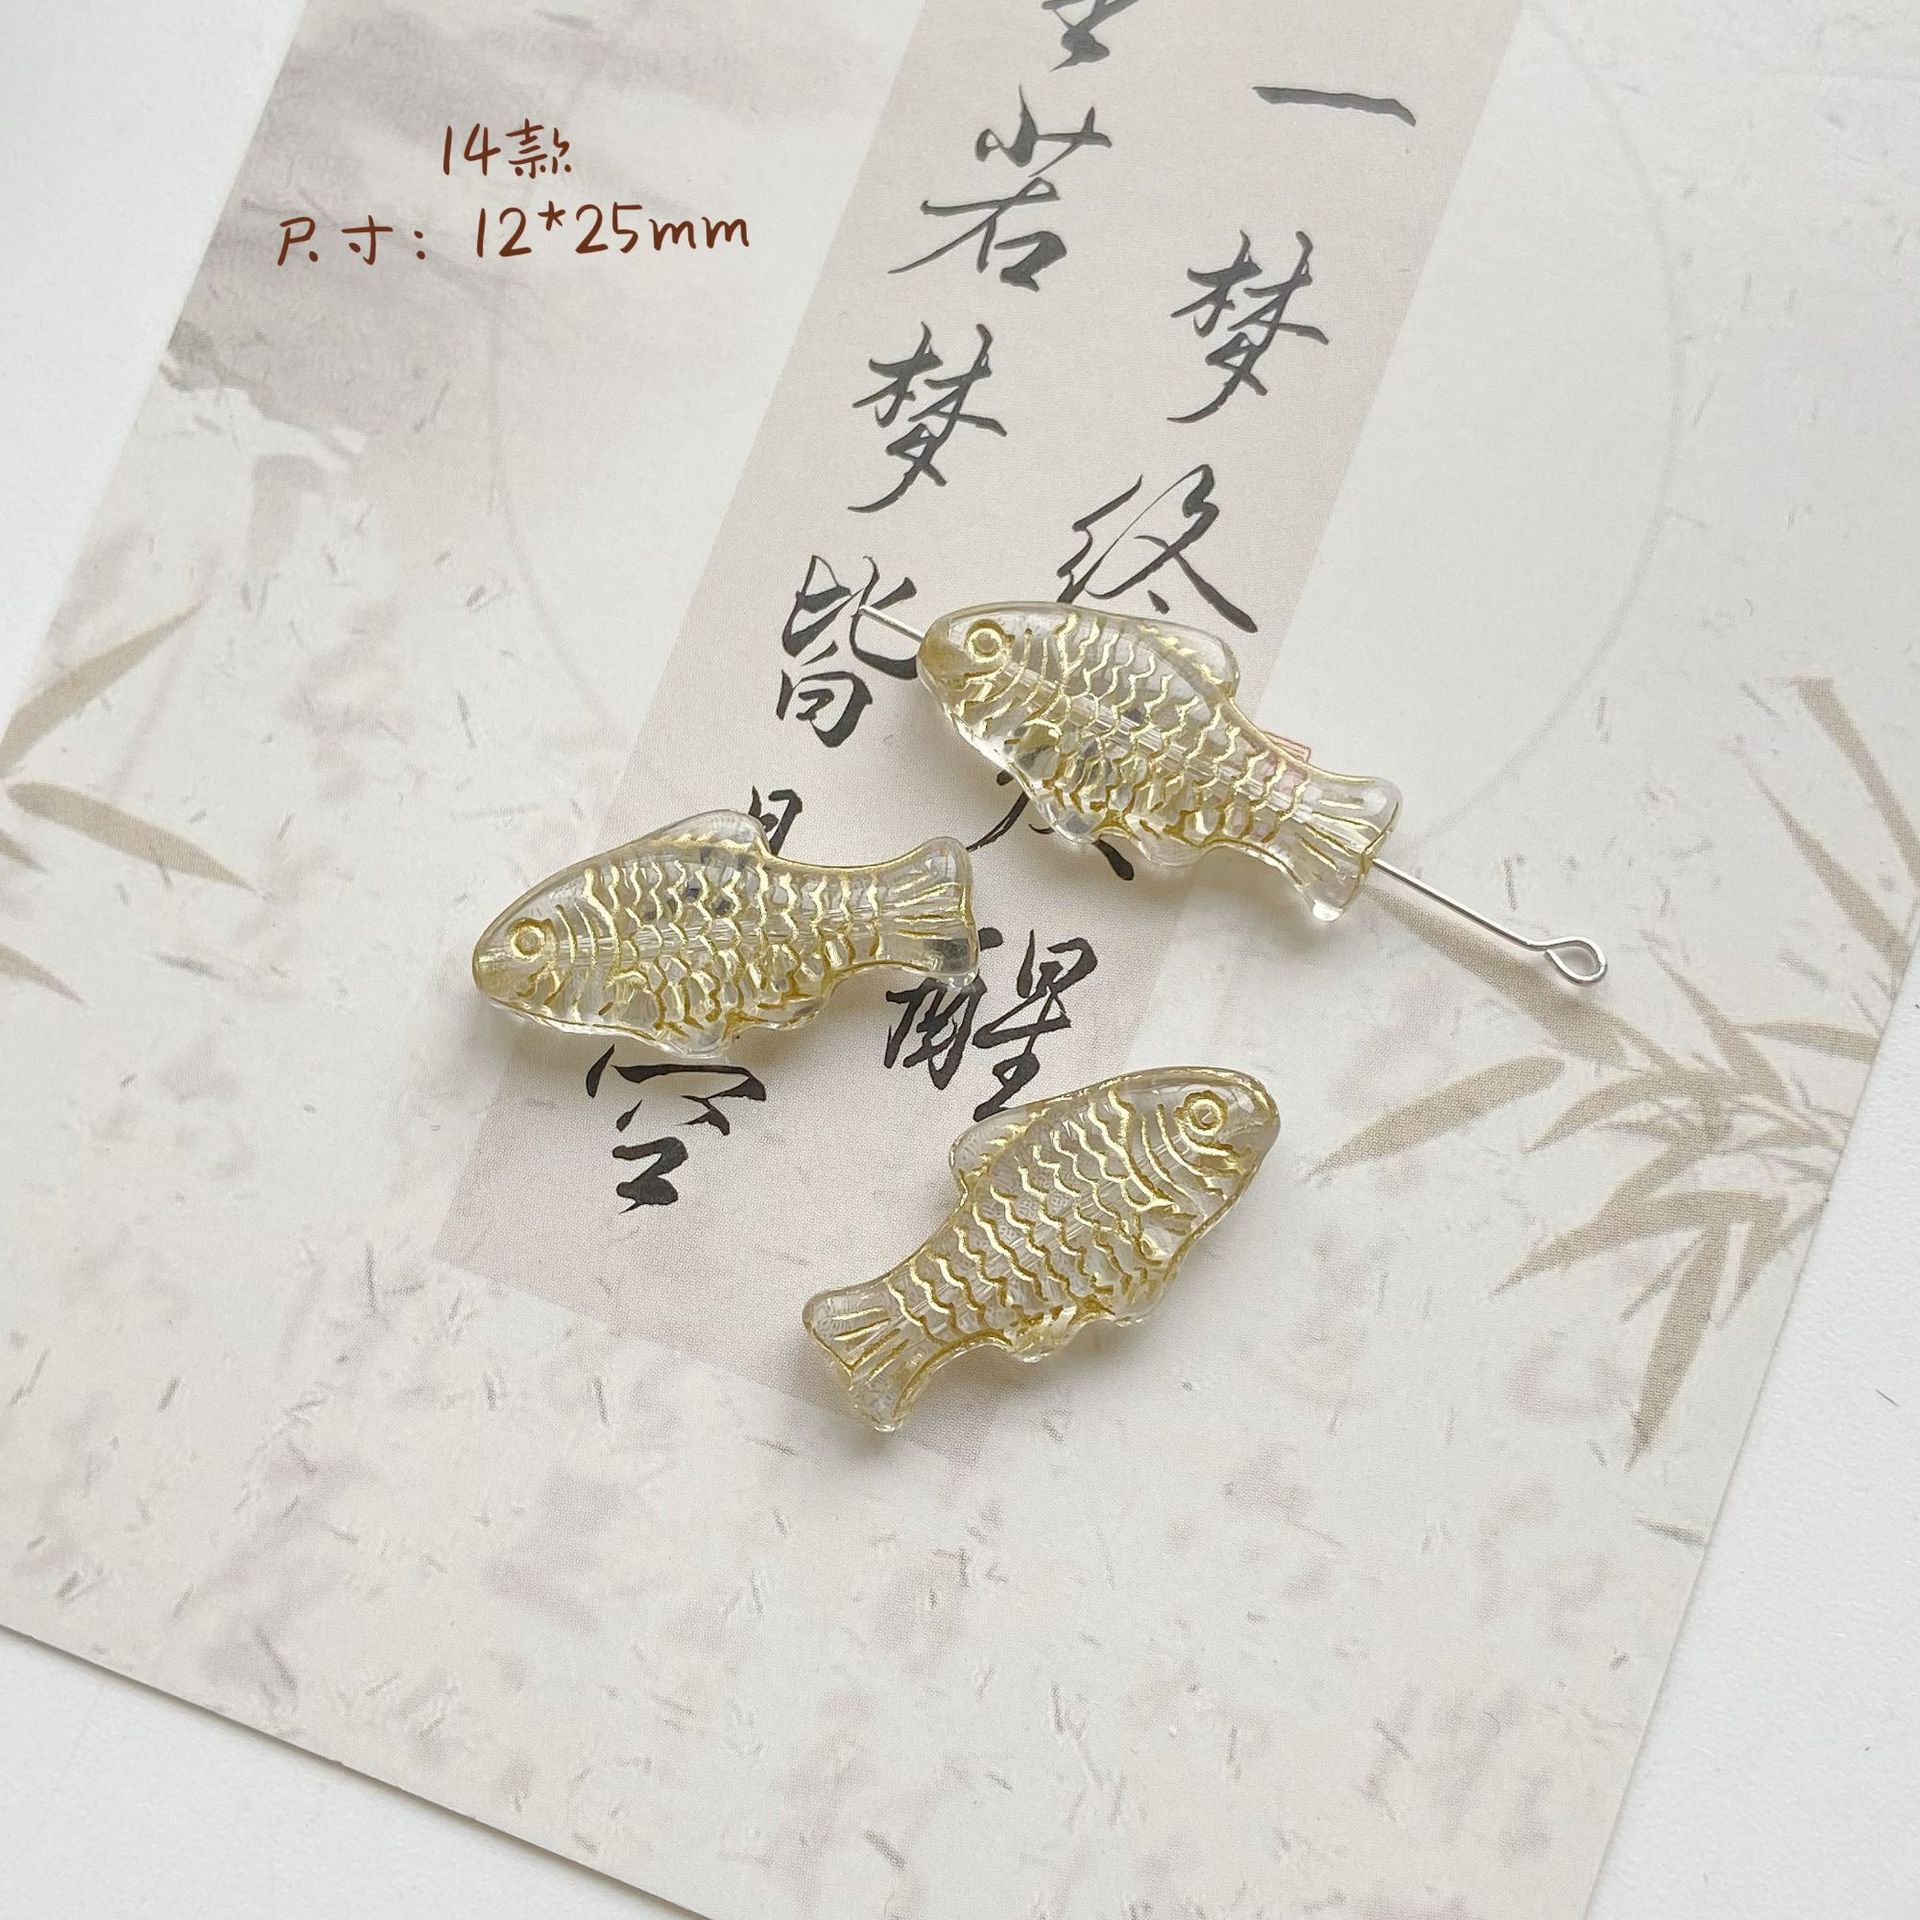 14款
尺寸: 12*25mm
一梦终
醒
若梦皆
空